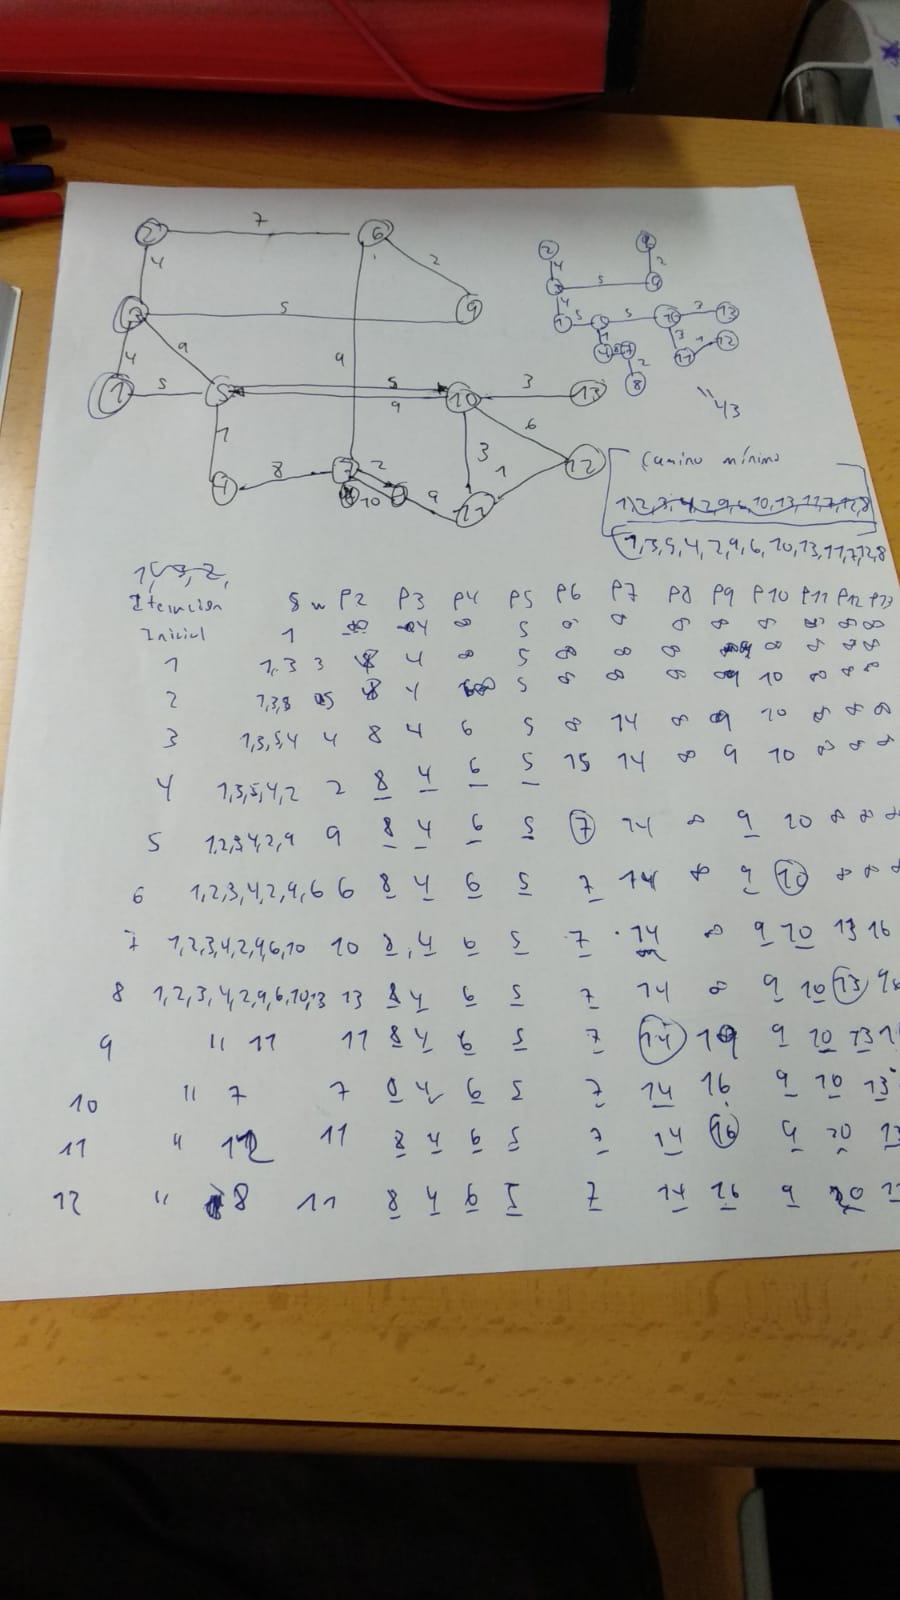 2 7 6
4 2
3 5 9
4 9 9
1 5 5 5 10 3 13
9 6
1 3 1 12
4 8 7 2 9 11
10
2 9
4 2
3 5 9
4
1 5 5 5 10 3 13
1 3 1 12
4 8 7 11
2
8
"43
Camino mínimo
1,3,5,4,2,9,6,10,13,11,7,12,8
Iteración S w P2 P3 P4 P5 P6 P7 P8 P9 P10 P11 P12 P13
Inicial 1 ∞ 4 ∞ 5 ∞ ∞ ∞ ∞ ∞ ∞ ∞ ∞
1 1,3 3 8 4 ∞ 5 ∞ ∞ ∞ 9 ∞ ∞ ∞ ∞
2 1,3,5 5 8 4 ∞ 5 ∞ ∞ ∞ 9 10 ∞ ∞ ∞
3 1,3,5,4 4 8 4 6 5 ∞ 14 ∞ 9 10 ∞ ∞ ∞
4 1,3,5,4,2 2 8 4 6 5 15 14 ∞ 9 10 ∞ ∞ ∞
5 1,2,3,4,2,9 9 8 4 6 5 7 14 ∞ 9 10 ∞ ∞ ∞
6 1,2,3,4,2,9,6 6 8 4 6 5 7 14 ∞ 9 10 ∞ ∞ ∞
7 1,2,3,4,2,9,6,10 10 8 4 6 5 7 14 ∞ 9 10 13 16
8 1,2,3,4,2,9,6,10,13 13 8 4 6 5 7 14 ∞ 9 10 13
9 " 11 11 8 4 6 5 7 14 19 9 10 13
10 " 7 7 4 6 5 7 14 16 9 10 13
11 " 12 11 8 4 6 5 7 14 16 9 10 13
12 " 8 11 8 4 6 5 7 14 16 9 10